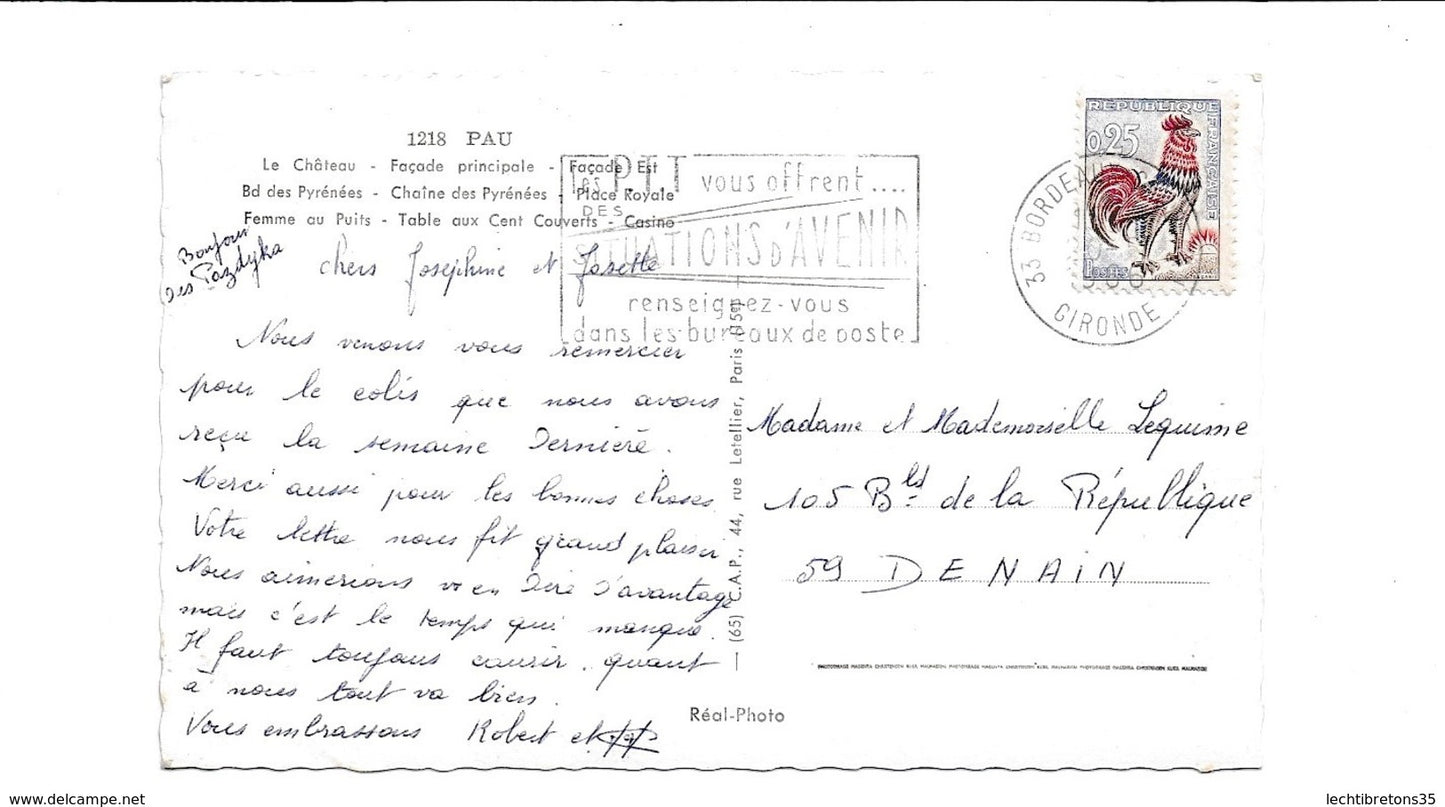 1218 PAU
Le Château - Façade principale - Façade Est
Bd des Pyrénées - Chaîne des Pyrénées - Place Royale
Femme au Puits - Table aux Cent Couverts - Casino
Les P.T.T vous offrent....
DES
SITUATIONS D'AVENIR
renseignez-vous
dans les bureaux de poste
REPUBLIQUE FRANÇAISE
0,25
POSTES
33 BORDEAUX
GIRONDE
Bonjour
des Pazdyka
Chers Joséphine et Josette
Nous venons vous remercier
pour le colis que nous avons
reçu la semaine dernière.
Merci aussi pour les bonnes choses
Votre lettre nous fit grand plaisir
Nous aimerions en dire d'avantage
mais c'est le temps qui manque.
Il faut toujours courir. quant
à nous tout va bien.
Vous embrassons Robert et
(65) C.A.P., 44, rue Letellier, Paris (15e)
Madame et Mademoiselle Lequime
105 Bld de la République
59 DENAIN
Réal-Photo
lechtibretons35